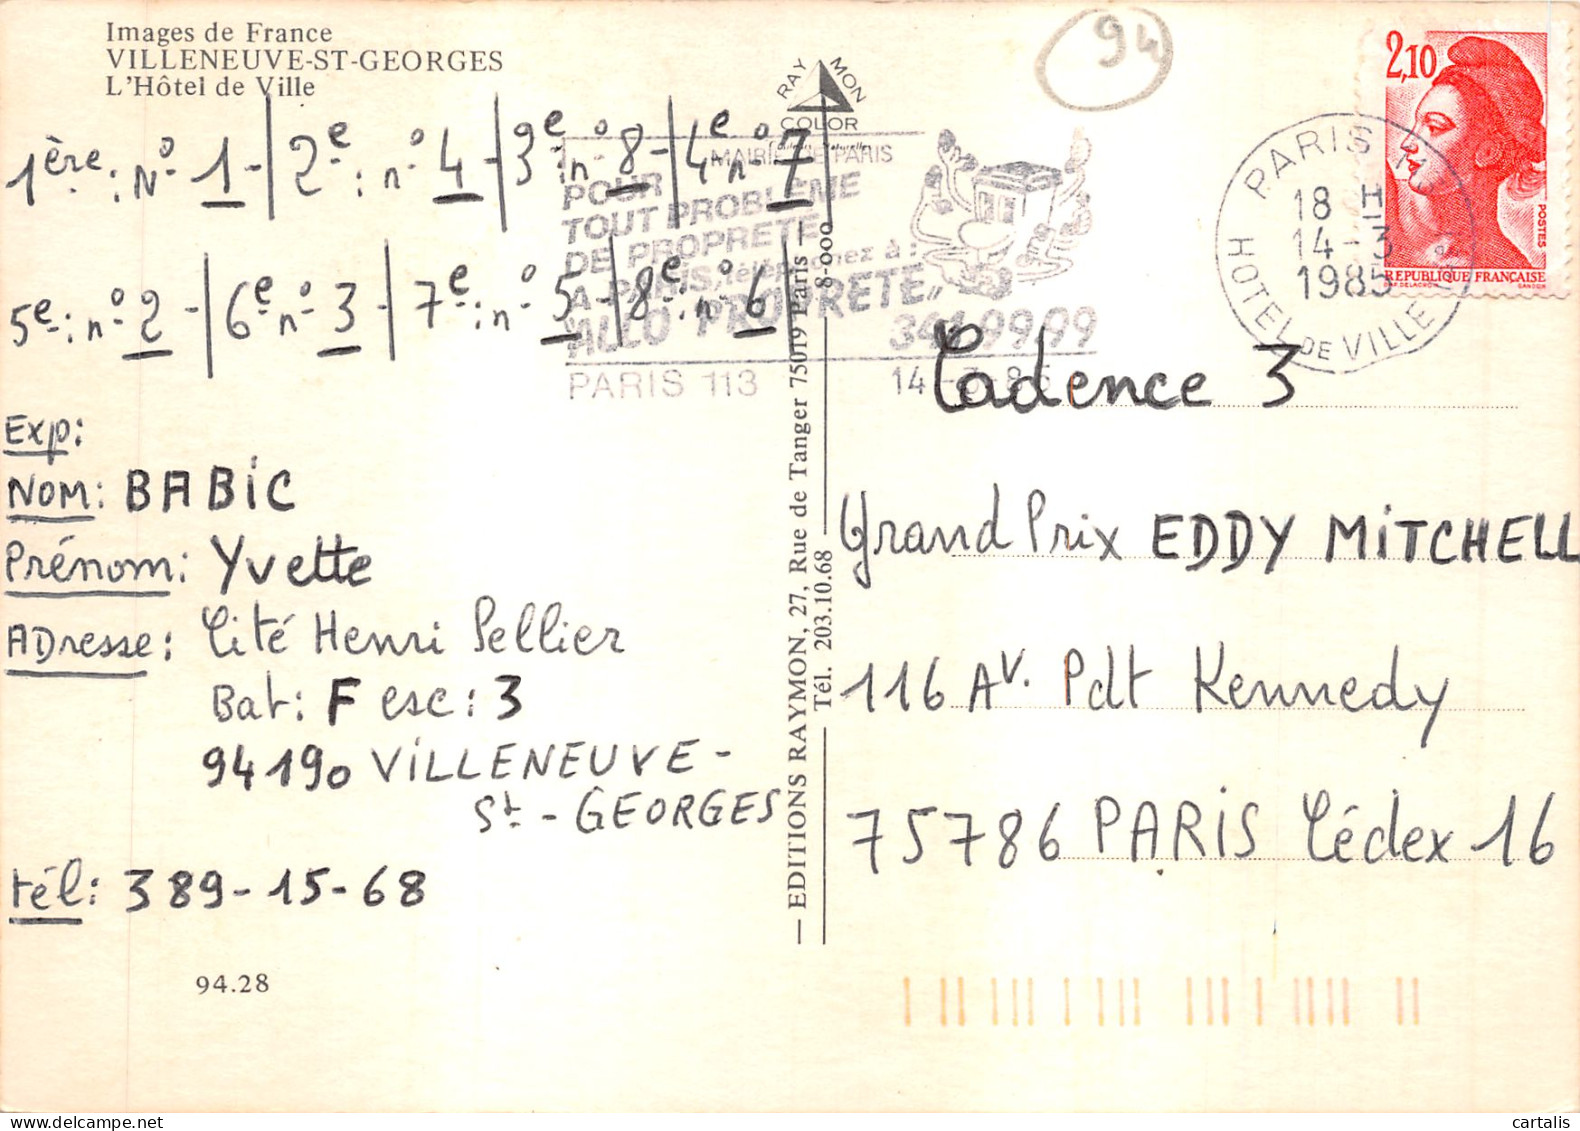 Images de France
VILLENEUVE-ST-GEORGES
L'Hôtel de Ville
1ère: N° 1 - | 2e: n° 4 - | 3e n° 8 - | 4e n° 7
5e: n° 2 - | 6e n° 3 - | 7e: n° 5 - | 8e: n° 6
Exp:
NOM: BABIC
Prénom: Yvette
ADresse: Cité Henri Sellier
Bat: F esc: 3
94190 VILLENEUVE -
St - GEORGES
tél: 389-15-68
94.28
RAYMON
COLOR
MAIRIE DE PARIS
POUR
TOUT PROBLEME
DE PROPRETE
A PARIS, téléphonez à:
"ALLO PROPRETE"
341 99 99
PARIS 113
14-3-85
— EDITIONS RAYMON, 27, Rue de Tanger 75019 Paris —
Tél. 203.10.68
8-000
94
2,10
POSTES
REPUBLIQUE FRANÇAISE
D'AP. DELACROIX GANDON
PARIS
18 H
14-3
1985
HOTEL DE VILLE
Cadence 3
Grand Prix EDDY MITCHELL
116 Av. Pdt Kennedy
75786 PARIS Cédex 16
cartalis